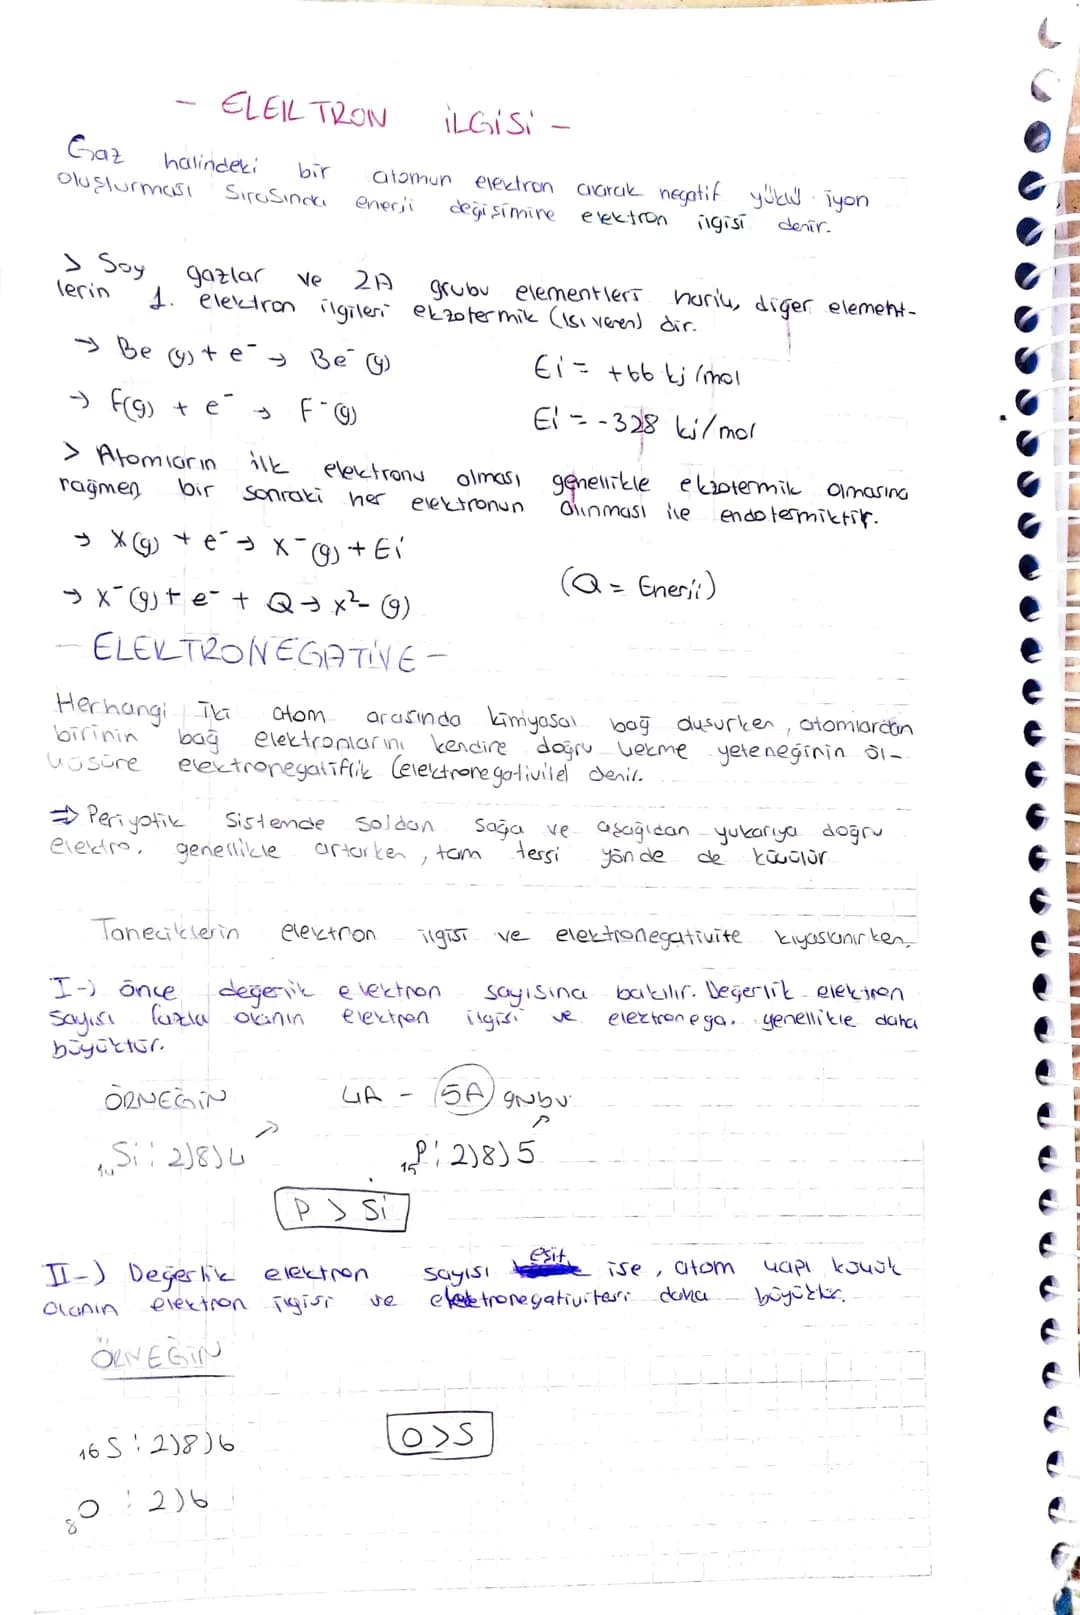 - ELEKTRON İLGİSİ -
Gaz halindeki bir atomun elektron alarak negatif yüklü iyon
oluşturması sırasında enerji değişimine elektron ilgisi denir.
> Soy gazlar ve 2A grubu elementleri hariç, diğer element-
lerin 1. elektron ilgileri ekzotermik (ısı veren) dir.
→ Be (g) + e⁻ → Be⁻ (g) Eİ = +66 kj/mol
→ F(g) + e⁻ → F⁻(g) Eİ = -328 kj/mol
> Atomların ilk elektronu alması genellikle ekzotermik olmasına
rağmen bir sonraki her elektronun alınması ise endotermiktir.
→ X(g) + e⁻ → X⁻(g) + Eİ
→ X⁻(g) + e⁻ + Q → X²⁻ (g) (Q = Enerji)
- ELEKTRONEGATİVE -
Herhangi iki atom arasında kimyasal bağ oluşurken, atomlardan
birinin bağ elektronlarını kendine doğru çekme yeteneğinin öl-
çüsüne elektronegatiflik (elektronegativite) denir.
⇒ Periyotik sistemde soldan sağa ve aşağıdan yukarıya doğru
elektro. genellikle artarken, tam tersi yönde de küçülür
Taneciklerin elektron ilgisi ve elektronegativite kıyaslanırken,
I-) önce değerlik elektron sayısına bakılır. Değerlik elektron
sayısı fazla olanın elektron ilgisi ve elektronega. genellikle daha
büyüktür.
ÖRNEĞİN 4A - 5A grubu
14Si: 2)8)4 15P: 2)8)5
P > Si
II-) Değerlik elektron sayısı eşit ise, atom çapı küçük
olanın elektron ilgisi ve elektronegativitesi daha büyüktür.
ÖRNEĞİN
16S : 2)8)6 O>S
8O : 2)6